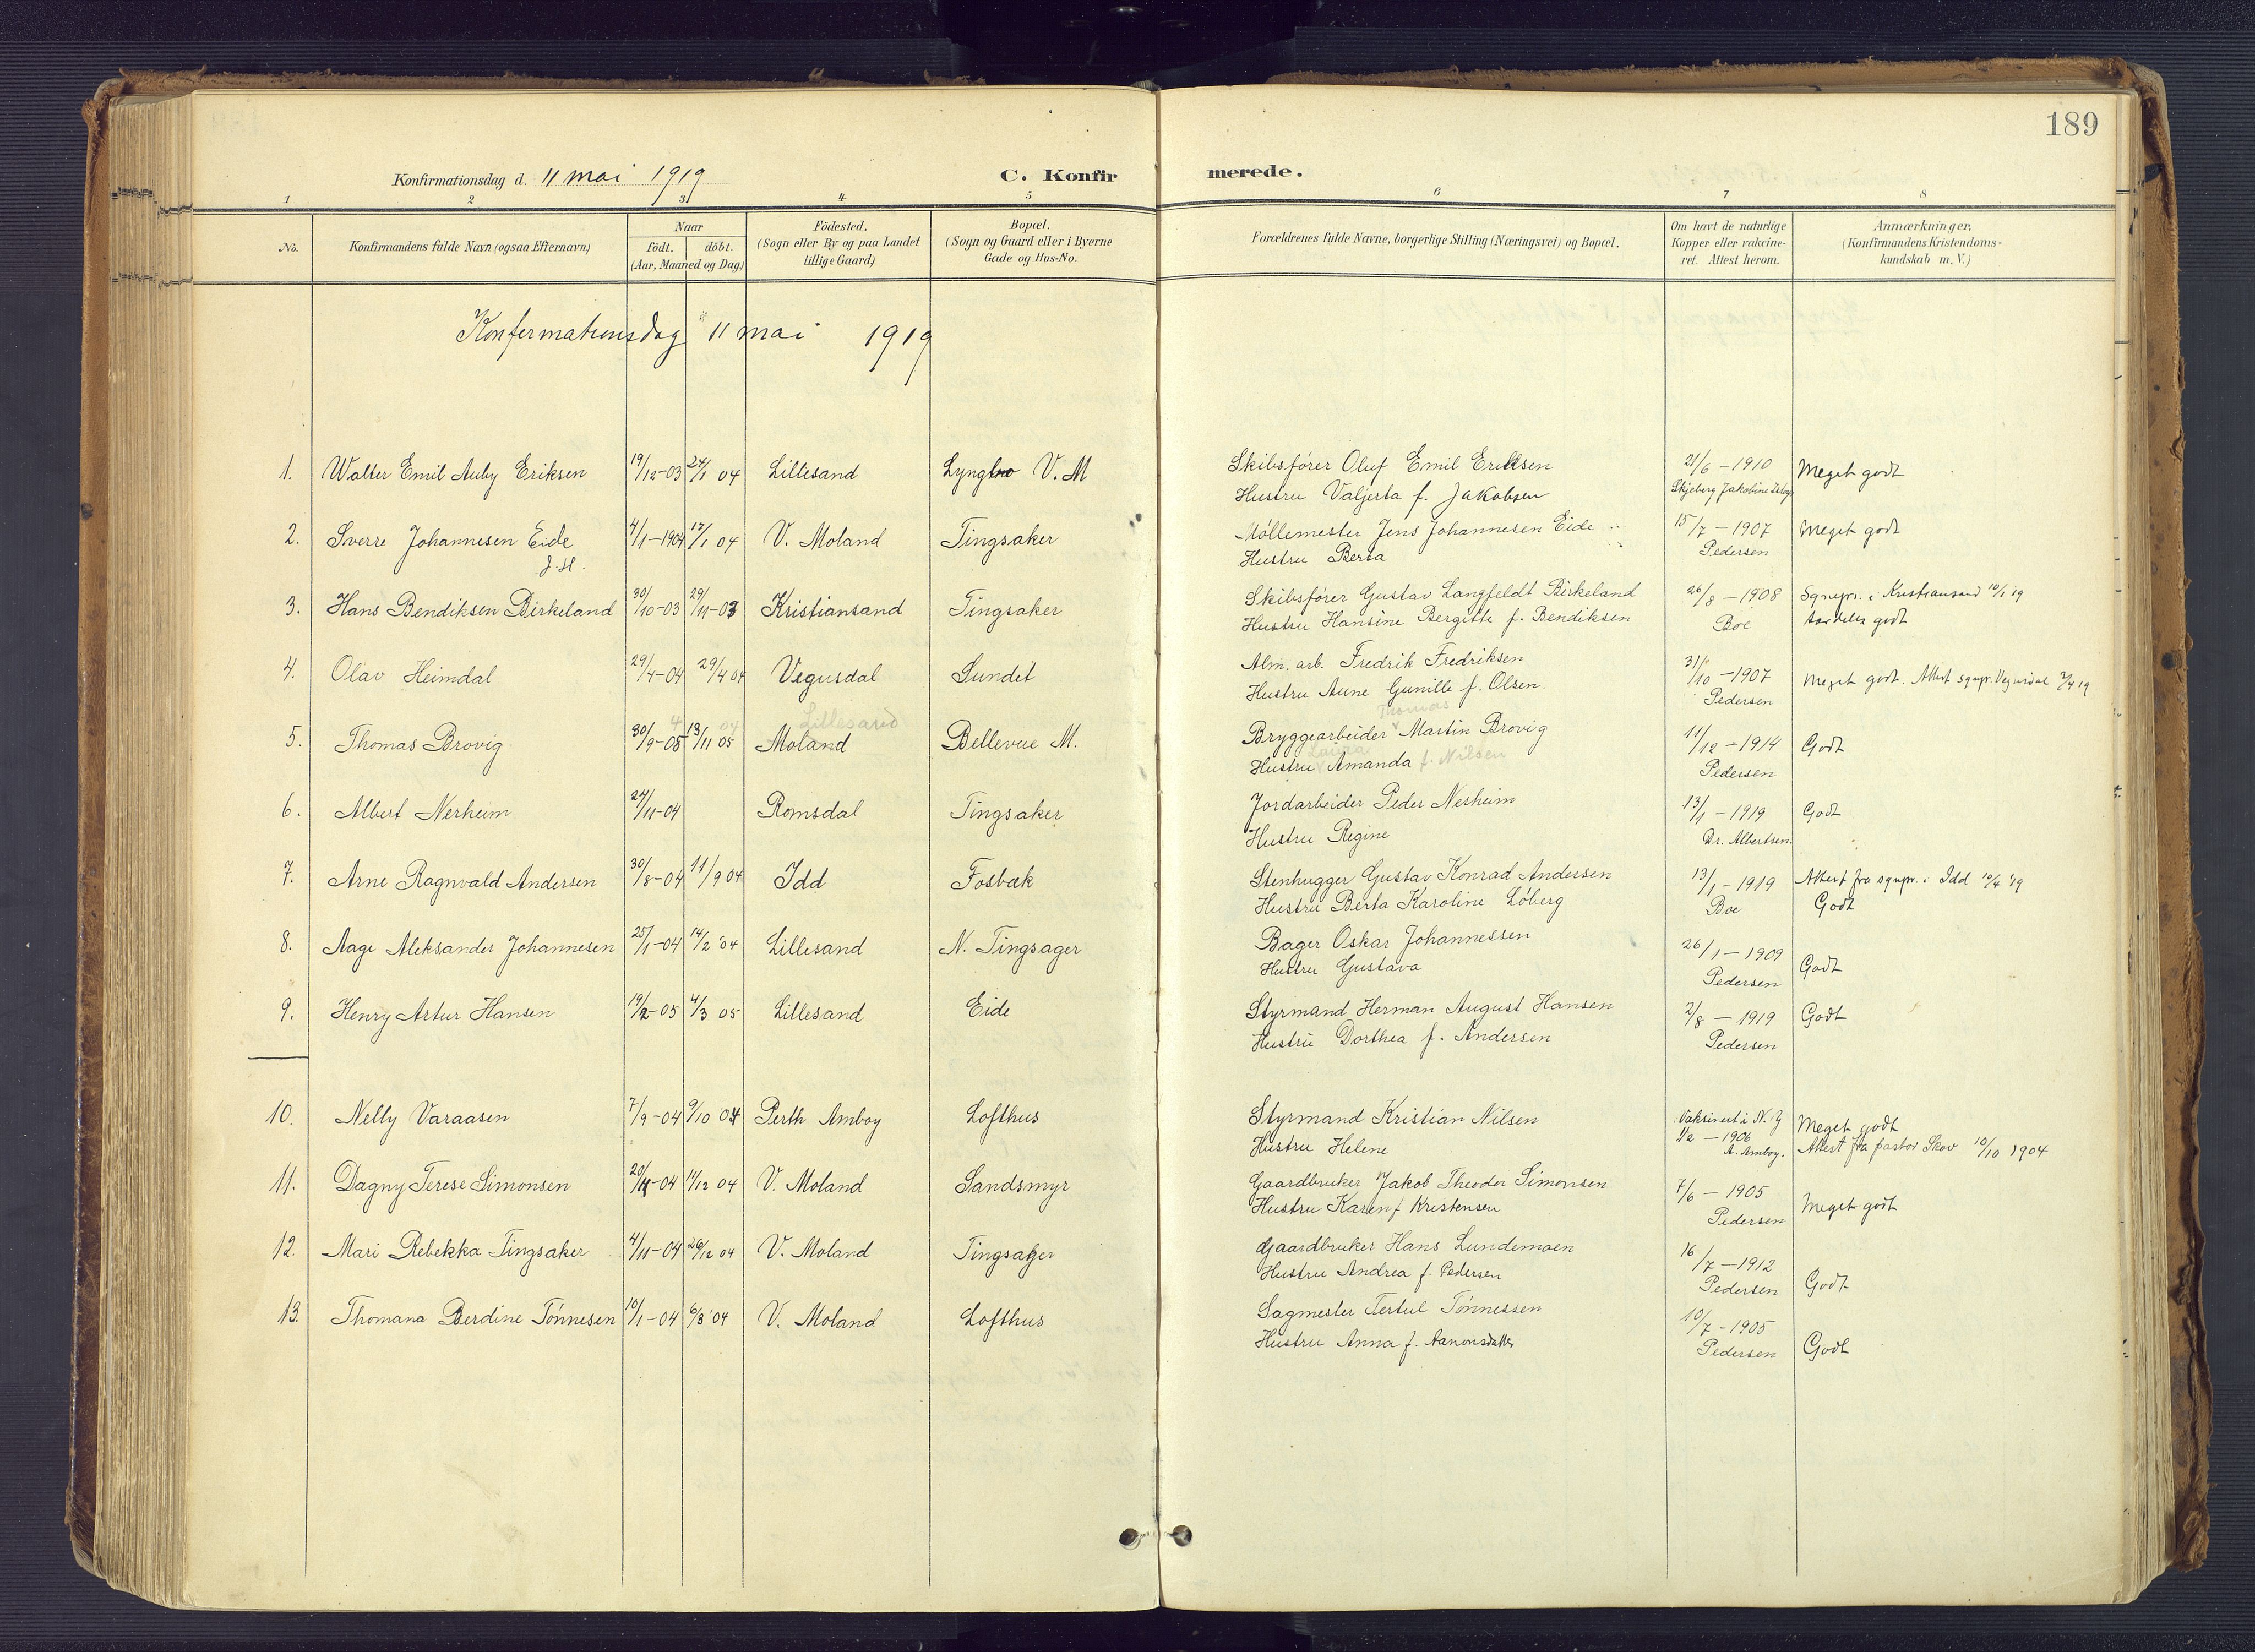 189
Konfirmationsdag d. 11 mai 1919
C. Konfirmerede.
1 2 3 4 5 6 7 8
No. Konfirmandens fulde Navn (ogsaa Efternavn) Naar födt. döbt. (Aar, Maaned og Dag.) Födested. (Sogn eller By og paa Landet tillige Gaard) Bopæl. (Sogn og Gaard eller i Byerne Gade og Hus-No. Forældrenes fulde Navne, borgerlige Stilling (Næringsvei) og Bopæl. Om havt de naturlige Kopper eller vakcineret. Attest herom. Anmærkninger. (Konfirmandens Kristendomskundskab m. V.)
Konfermationsdag 11 mai 1919
1. Walter Emil Auby Eriksen 19/12-03 24/1 04 Lillesand Lyngbro V. M Skibsfører Oluf Emil Eriksen 21/6 - 1910 Meget godt
Hustru Valjerta f. Jakobsen Skjeberg Jakobine
2. Sverre Johannesen Eide 4/1-1904 17/1 04 V. Moland Tingsaker Møllemester Jens Johannesen Eide 15/7 - 1907 Meget godt
J. H. Hustru Berta Pedersen
3. Hans Bendiksen Birkeland 30/10-03 29/11-03 Kristiansand Tingsaker Skibsfører Gustav Langfeldt Birkeland 26/8 - 1908 Sgnepr. i Kristiansand 10/1 19
Hustru Hansine Bergitte f. Bendiksen Boe særdeles godt
4. Olav Heimdal 29/4-04 29/4 04 Vegusdal Sundet Alm. arb. Fredrik Fredriksen 31/10 - 1907 Meget godt. Attest sgnpr. Vegusdal 2/4 19
Hustru Aune Gunille f. Olsen. Pedersen
4 04 Lillesand Thomas
5. Thomas Brovig 30/9-05 13/11 05 Moland Bellevue M. Bryggearbeider Martin Brovig 11/12 - 1914 Godt
Laura
Hustru Amanda f. Nilsen Pedersen
6. Albert Nerheim 24/11-04 Romsdal Tingsaker Jordarbeider Peder Nerheim 13/1 - 1919 Godt
Hustru Regine Dr. Albertsen.
7. Arne Ragnvald Andersen 30/8-04 11/9 04 Idd Fosbæk Stenhugger Gustav Konrad Andersen 13/1 - 1919 Attest fra sgnpr. i Idd 10/4 '19
Hustru Berta Karoline Løberg Boe Godt
8. Aage Aleksander Johannesen 25/1-04 14/2 '04 Lillesand N. Tingsager Bager Oskar Johannessen 26/1 - 1909 Godt
Hustru Gustava Pedersen
9. Henry Artur Hansen 19/2-05 4/3 05 Lillesand Eide Styrmand Herman August Hansen 2/8 - 1919 Godt
Hustru Dorthea f. Andersen Pedersen
10. Nelly Varaasen 7/9-04 9/10 04 Perth Amboy Lofthus Styrmand Kristian Nilsen Vaksinert i N. Y Meget godt
Hustru Helene 1/2 - 1906 Attest fra pastor Skov 10/10 1904
A. Amboy.
11. Dagny Terese Simonsen 20/11-04 11/12 04 V. Moland Sandsmyr Gaardbruker Jakob Theodor Simonsen 7/6 - 1905 Meget godt
Hustru Karen f Kristensen Pedersen
12. Mari Rebekka Tingsaker 4/11-04 26/12 04 V. Moland Tingsager Gaardbruker Hans Lundemoen 16/7 - 1912
Hustru Andrea f. Pedersen Pedersen Godt
13. Thomana Berdine Tønnesen 10/1-04 6/3 '04 V. Moland Lofthus Sagmester Tertul Tønnessen 10/7 - 1905
Hustru Anna f. Aanonsdatter Pedersen Godt